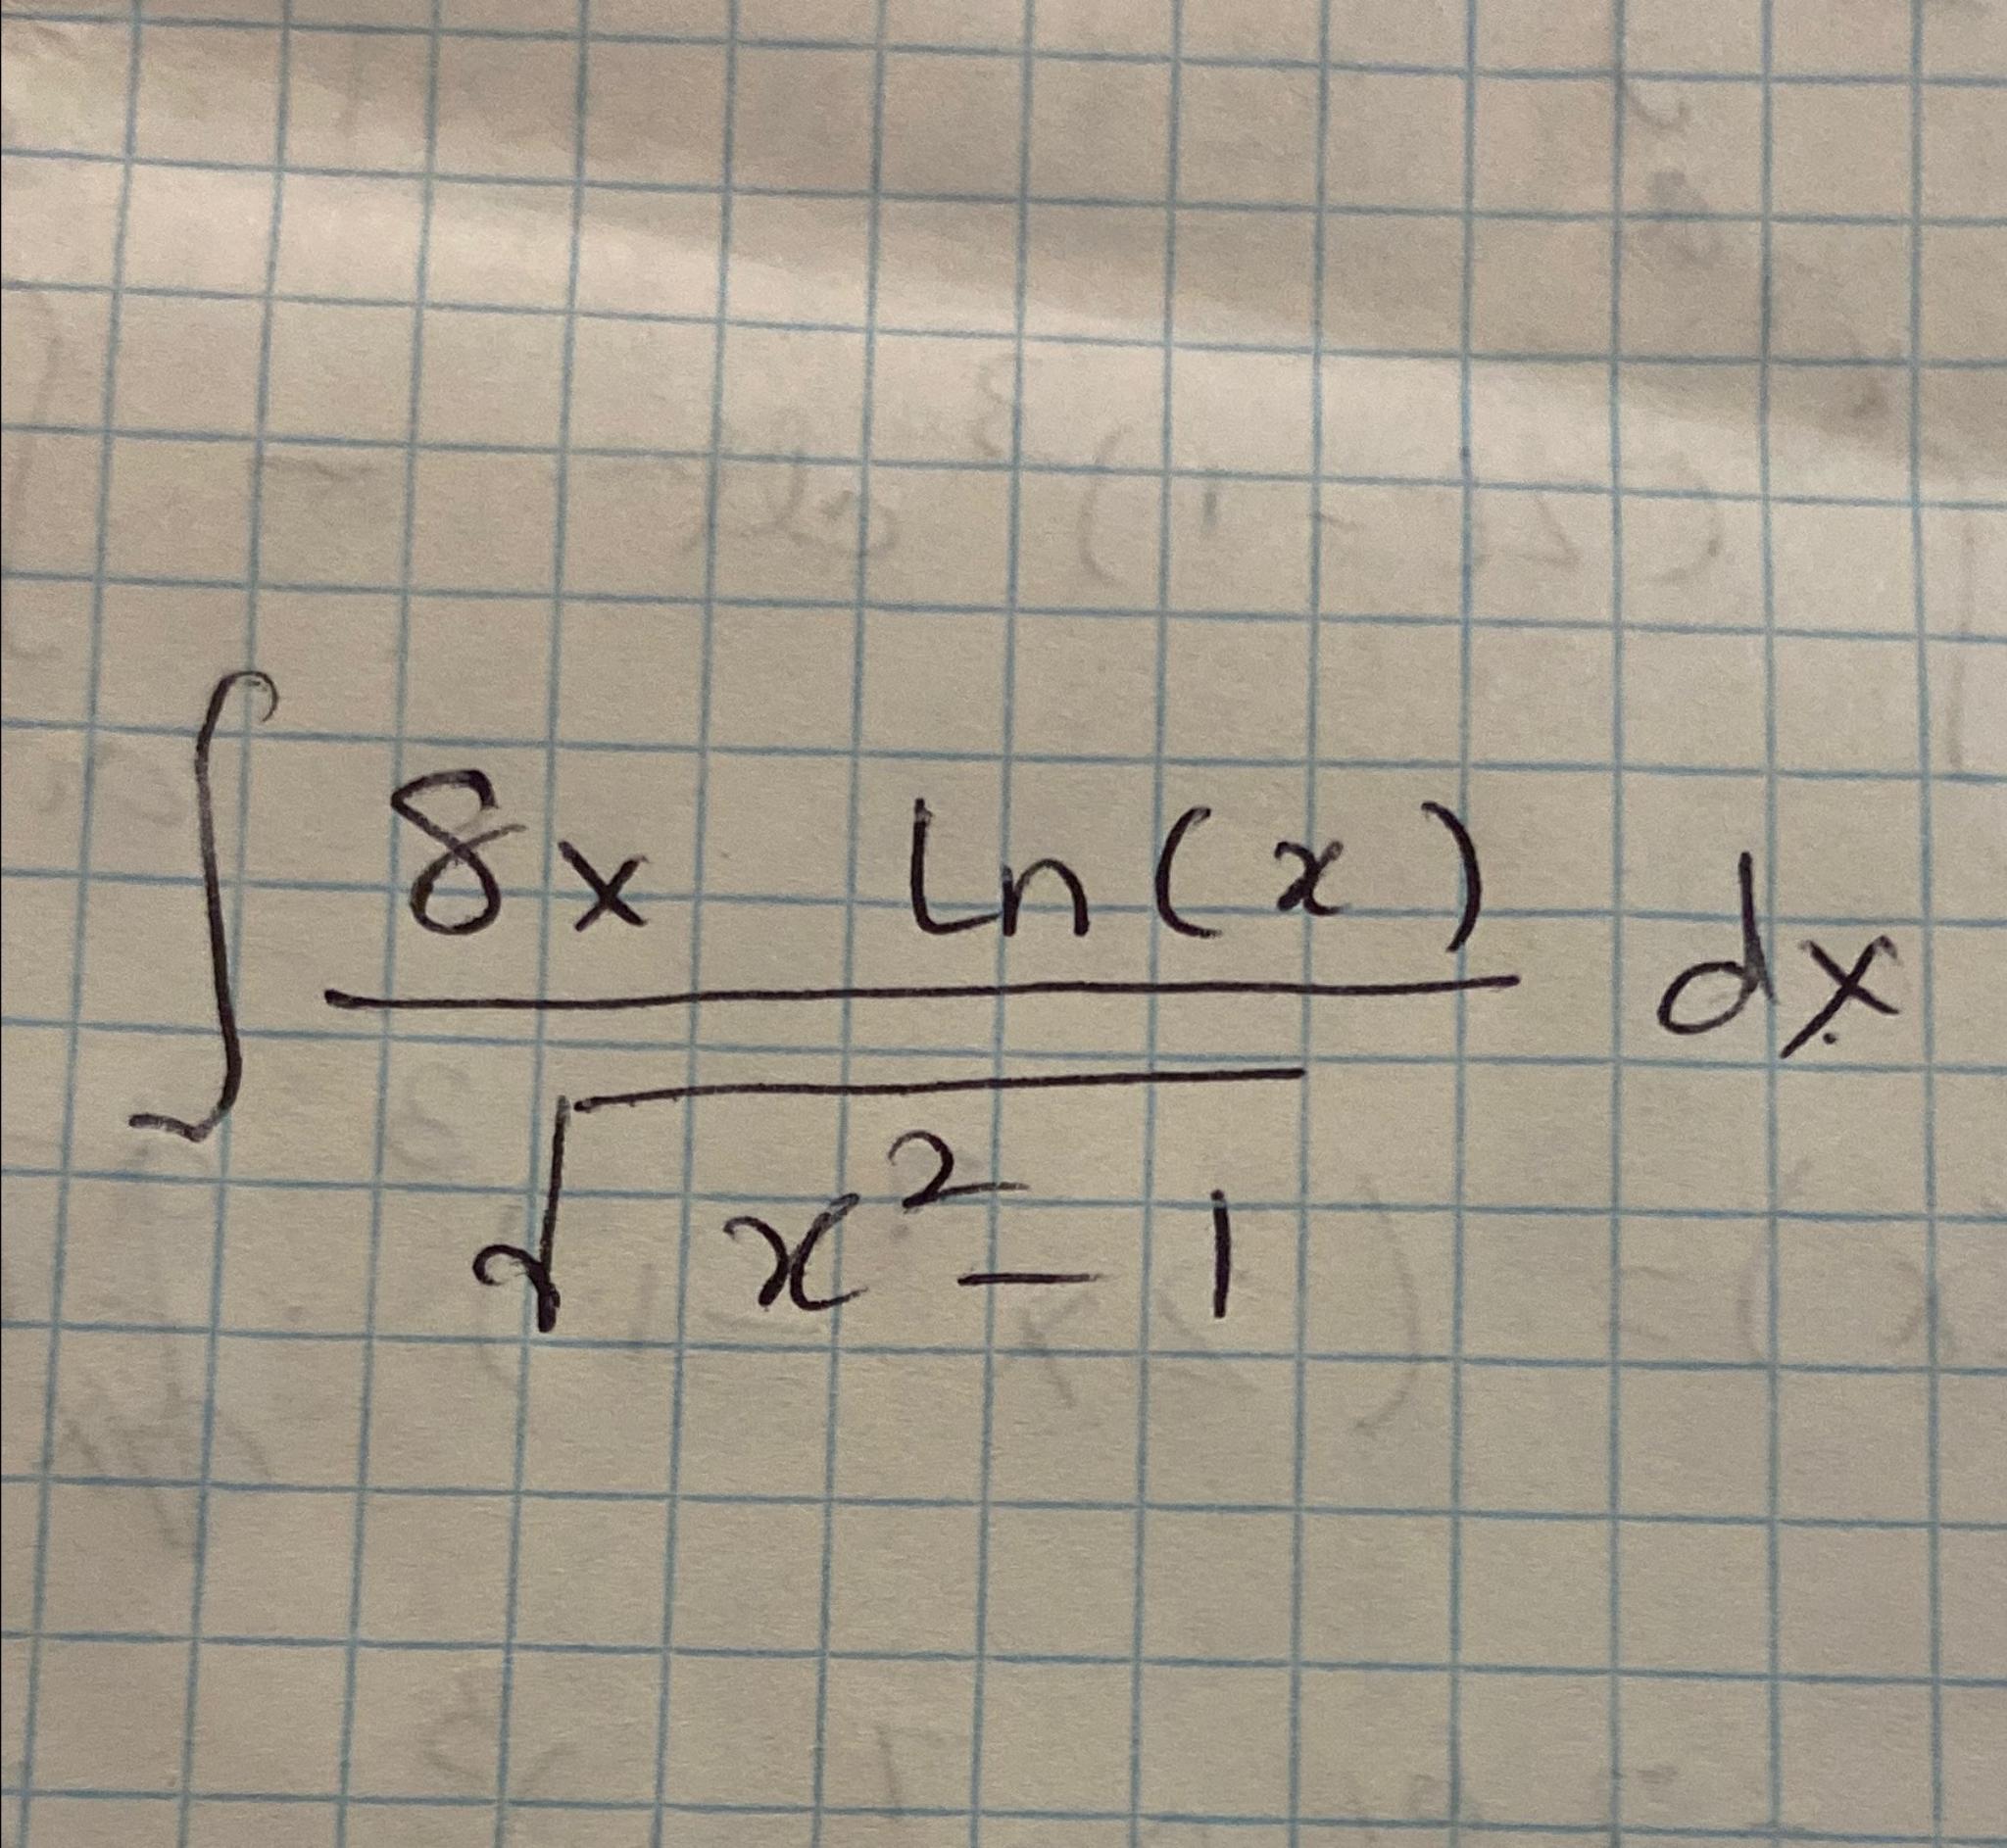 ∫ 8x ln(x) / √(x² − 1) dx